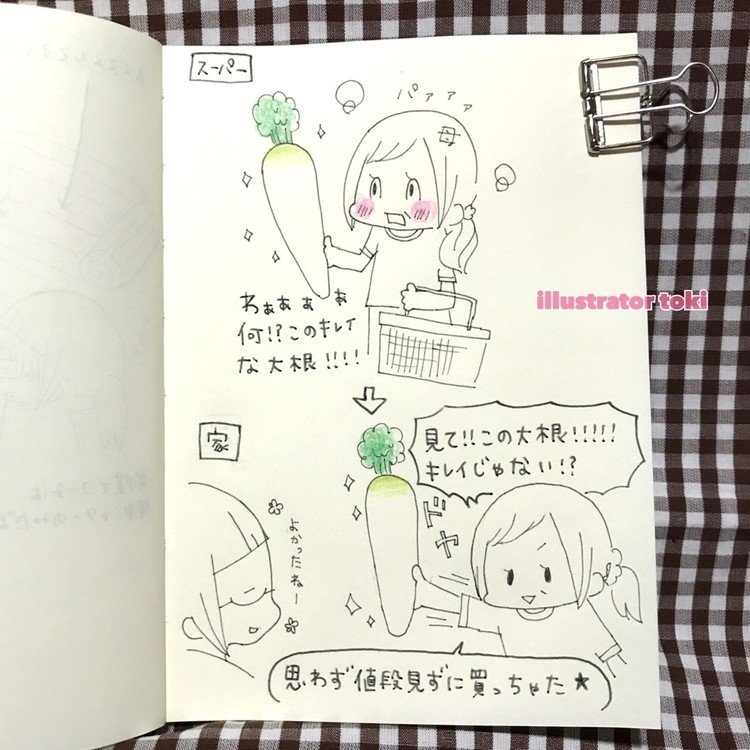 スーパー
パァァァ
母
わぁぁぁぁ
何!?このキレイ
な大根!!!!
illustrator toki
家
見て!!この大根!!!!!
キレイじゃない!?
ドヤ
よかったねー
思わず値段見ずに買っちゃた★